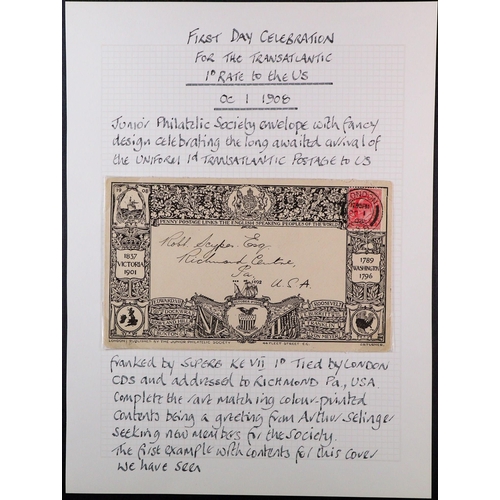 FIRST DAY CELEBRATION
FOR THE TRANSATLANTIC
1D RATE to the US
OC 1 1908
Junior Philatelic Society envelope with fancy
design celebrating the long awaited arrival of
the UNIFORM 1d TRANSATLANTIC Postage to US
PENNY POSTAGE LINKS THE ENGLISH SPEAKING PEOPLES OF THE WORLD
LONDON
1837
VICTORIA
1901
1789
WASHINGTON
1796
Robt Scyper Esq
Richmond Centre,
Pa
U.S.A.
1908
EDWARD VII
ROOSEVELT
LONDON: PUBLISHED BY THE JUNIOR PHILATELIC SOCIETY
44 FLEET STREET E.C.
franked by SUPERB KE VII 1D TIED by LONDON
CDS and addressed to RICHMOND Pa, USA.
Complete the rare matching colour-printed
contents being a greeting from Arthur Selinger
seeking new members for the Society.
The first example with contents for this cover
we have seen